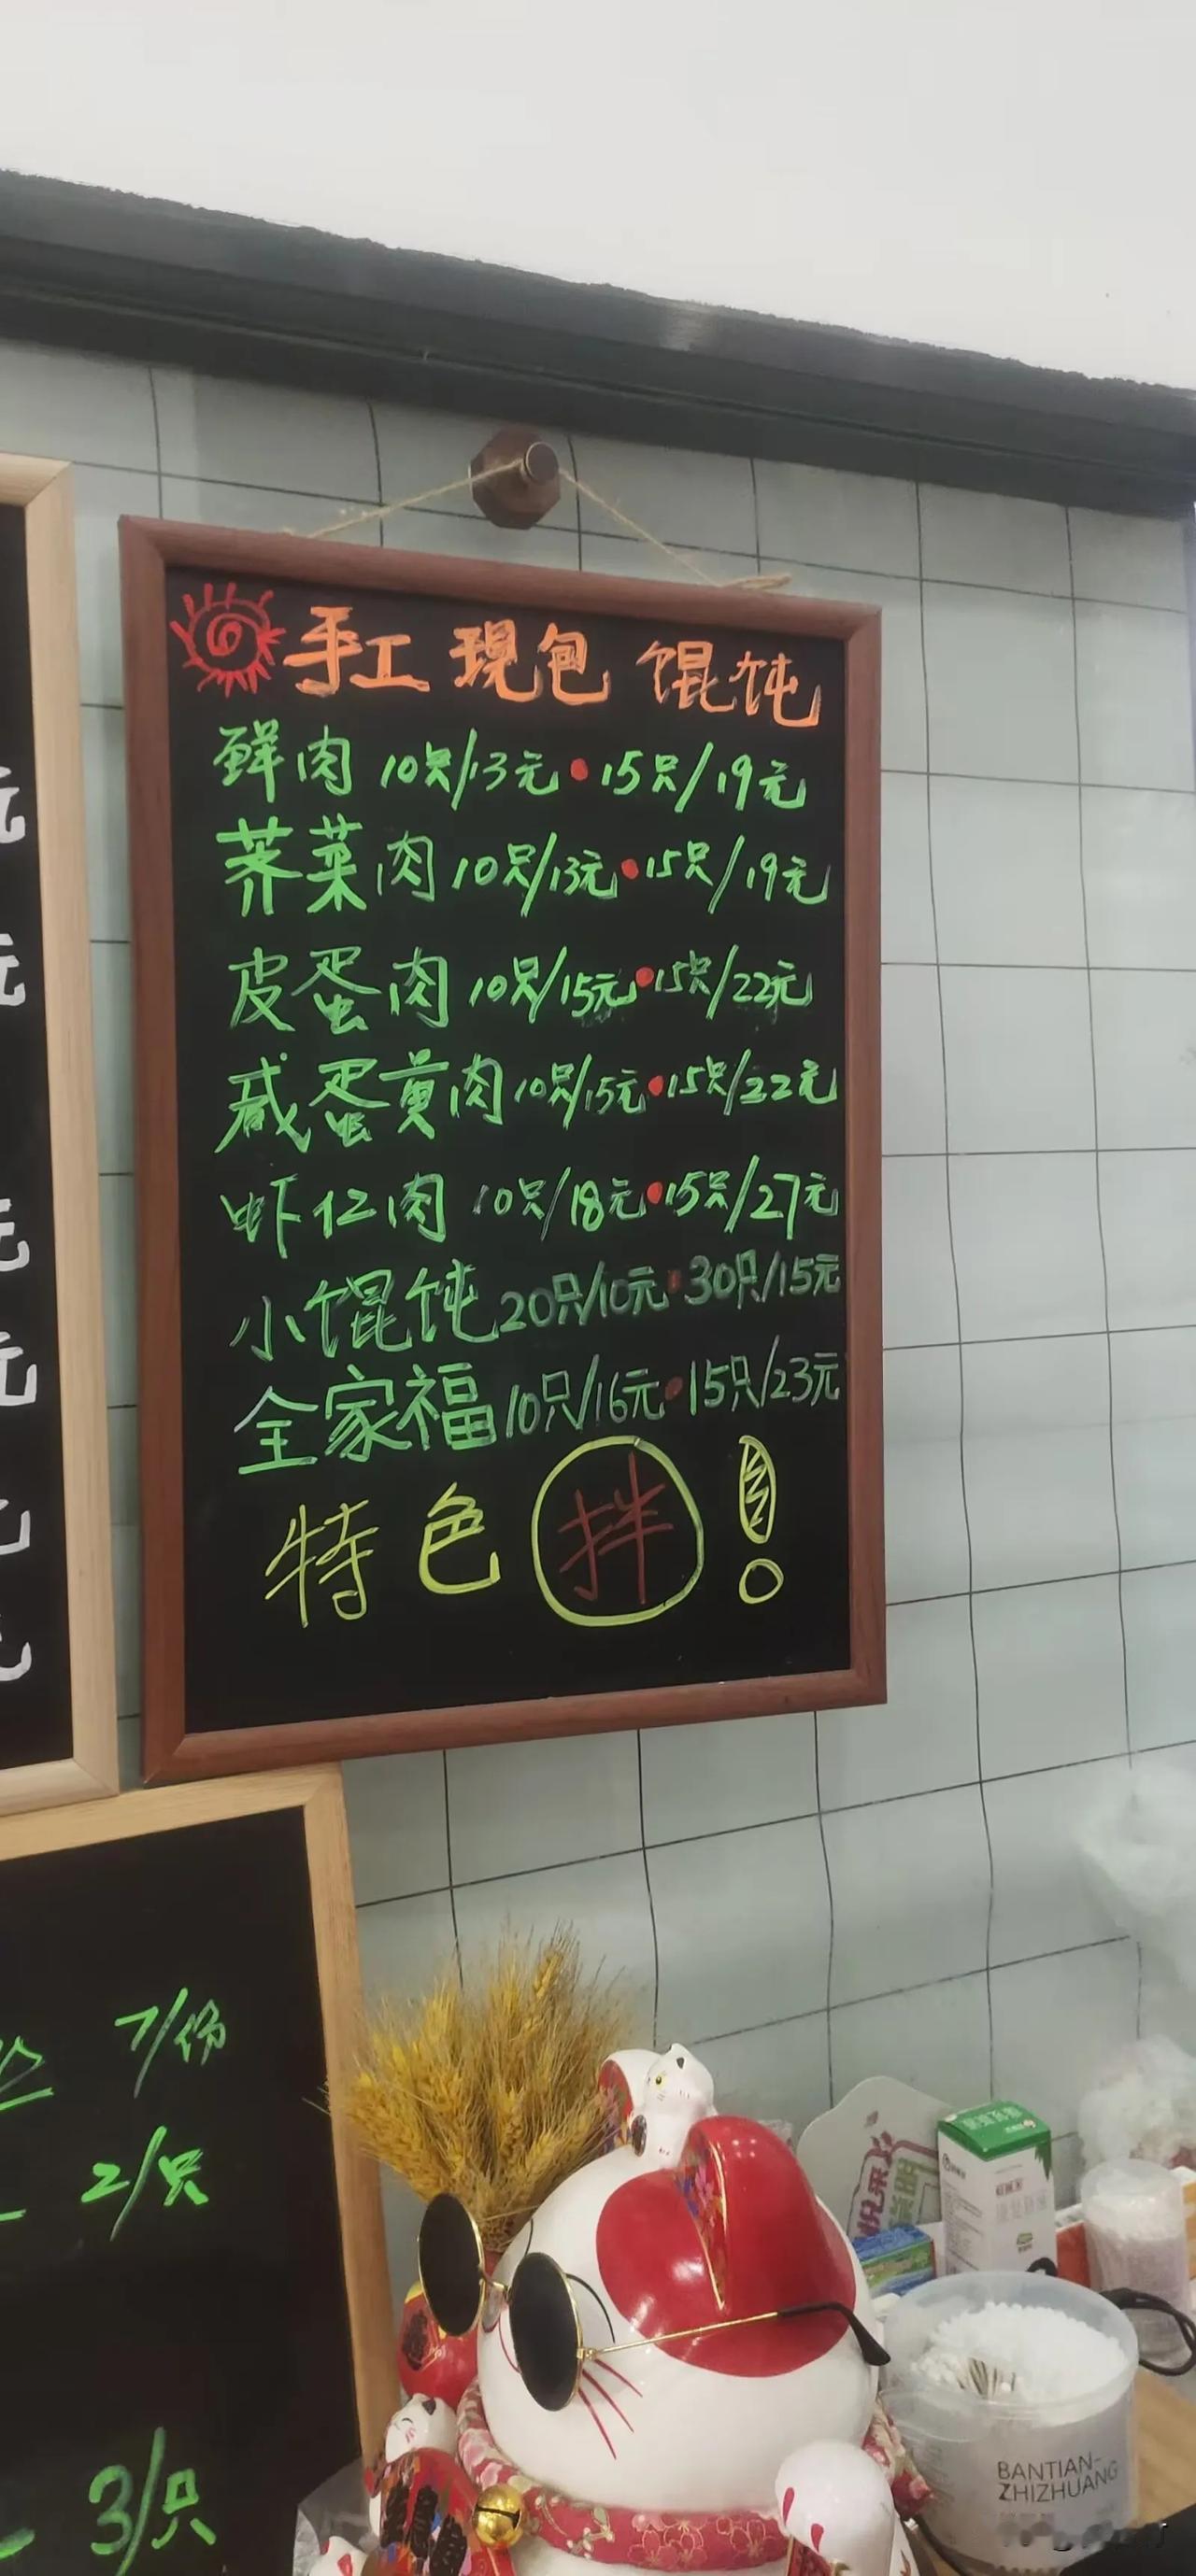 手工现包 馄饨
鲜肉 10只/13元•15只/19元
荠菜肉 10只/13元•15只/19元
皮蛋肉 10只/15元•15只/22元
咸蛋黄肉 10只/15元•15只/22元
虾仁肉 10只/18元•15只/27元
小馄饨 20只/10元•30只/15元
全家福 10只/16元•15只/23元
特色拌!
元
元
元
元
元
元
7/份
2/只
3/只
BANTIAN-
ZHIZHUANG